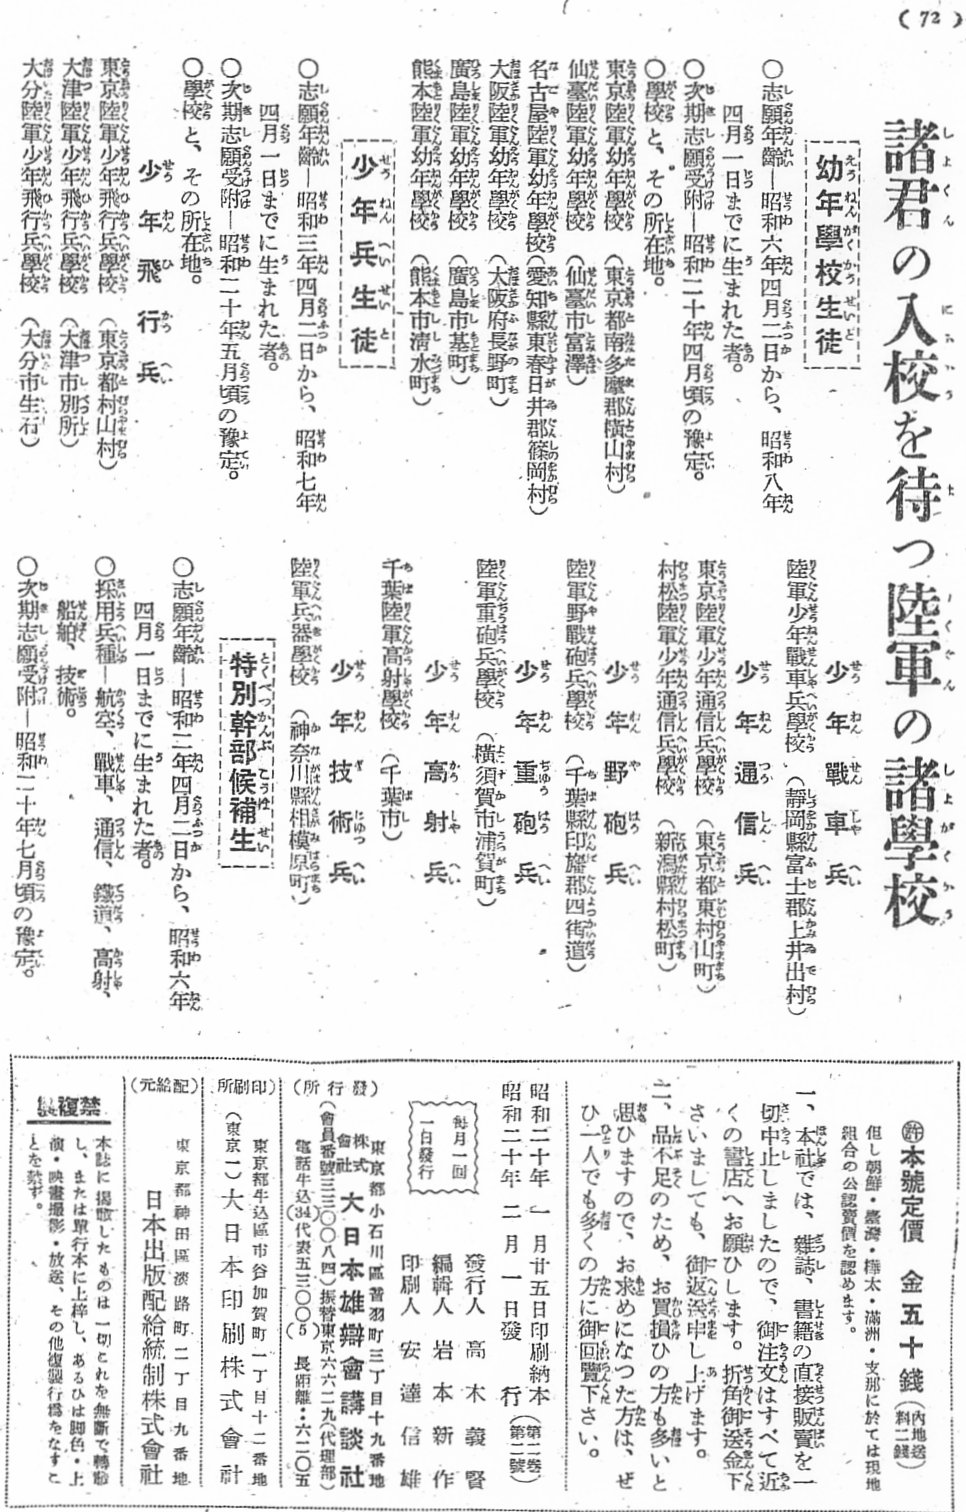 (72)
諸君の入校を待つ陸軍の諸學校
幼年學校生徒
○志願年齡―昭和六年四月二日から、昭和八年
四月一日までに生まれた者。
○次期志願受附―昭和二十年四月頃の豫定。
○學校と、その所在地。
東京陸軍幼年學校(東京都南多摩郡横山村)
仙臺陸軍幼年學校(仙臺市富澤)
名古屋陸軍幼年學校(愛知縣東春日井郡篠岡村)
大阪陸軍幼年學校(大阪府長野町)
廣島陸軍幼年學校(廣島市基町)
熊本陸軍幼年學校(熊本市清水町)
少年兵生徒
○志願年齡―昭和三年四月二日から、昭和七年
四月一日までに生まれた者。
○次期志願受附―昭和二十年五月頃の豫定。
○學校と、その所在地。
少年飛行兵
東京陸軍少年飛行兵學校(東京都村山村)
大津陸軍少年飛行兵學校(大津市別所)
大分陸軍少年飛行兵學校(大分市生石)
少年戰車兵
陸軍少年戰車兵學校(靜岡縣富士郡上井出村)
少年通信兵
東京陸軍少年通信兵學校(東京都東村山町)
村松陸軍少年通信兵學校(新潟縣村松町)
少年野砲兵
陸軍野戰砲兵學校(千葉縣印旛郡四街道)
少年重砲兵
陸軍重砲兵學校(橫須賀市浦賀町)
少年高射兵
千葉陸軍高射學校(千葉市)
少年技術兵
陸軍兵器學校(神奈川縣相模原町)
特別幹部候補生
○志願年齡―昭和二年四月二日から、昭和六年
四月一日までに生まれた者。
○採用兵種―航空、戰車、通信、鐵道、高射、
船舶、技術。
○次期志願受附―昭和二十年七月頃の豫定。
㊢本號定價 金五十錢(内地送料二錢)
但し朝鮮・臺灣・樺太・滿洲・支那に於ては現地
組合の公認賣價を認めます。
一、本社では、雜誌、書籍の直接販賣を一
切中止しましたので、御注文はすべて近
くの書店へお願ひします。折角御送金下
さいましても、御返送申し上げます。
二、品不足のため、お買損ひの方も多いと
思ひますので、お求めになつた方は、ぜ
ひ一人でも多くの方に御回覽下さい。
昭和二十年一月廿五日印刷納本(第二卷)
昭和二十年二月一日發行(第二號)
每月一回
一日發行
發行人 高木義賢
編輯人 岩本新作
印刷人 安達信雄
(發行所)
東京都小石川區音羽町三丁目十九番地
株式會社 大日本雄辯會講談社
(會員番號三三〇〇八四)振替東京六六二九(代理部)
電話牛込(34)代表五三〇〇(5)長距離・六二〇五
(印刷所)
東京都牛込區市谷加賀町一丁目十二番地
(東京一)大日本印刷株式會社
(配給元)
東京都神田區淡路町二丁目九番地
日本出版配給統制株式會社
禁複製
本誌に揭載したものは一切これを無斷で轉載
し、または單行本に上梓し、あるひは脚色・上
演・映畫撮影・放送、その他複製行爲をなすこ
とを禁ず。